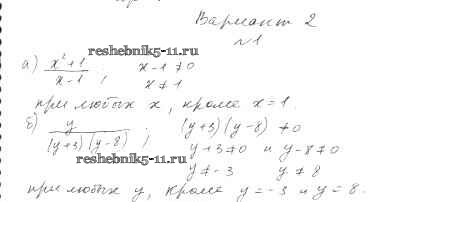 Вариант 2
№1
reshebnik5-11.ru
а) x²+1 / x-1 ; x-1 ≠ 0
x ≠ 1
при любых x, кроме x = 1.
б) y / (y+3)(y-8) ; (y+3)(y-8) ≠ 0
y+3 ≠ 0 и y-8 ≠ 0
reshebnik5-11.ru
y ≠ -3 y ≠ 8
при любых y, кроме y = -3 и y = 8.